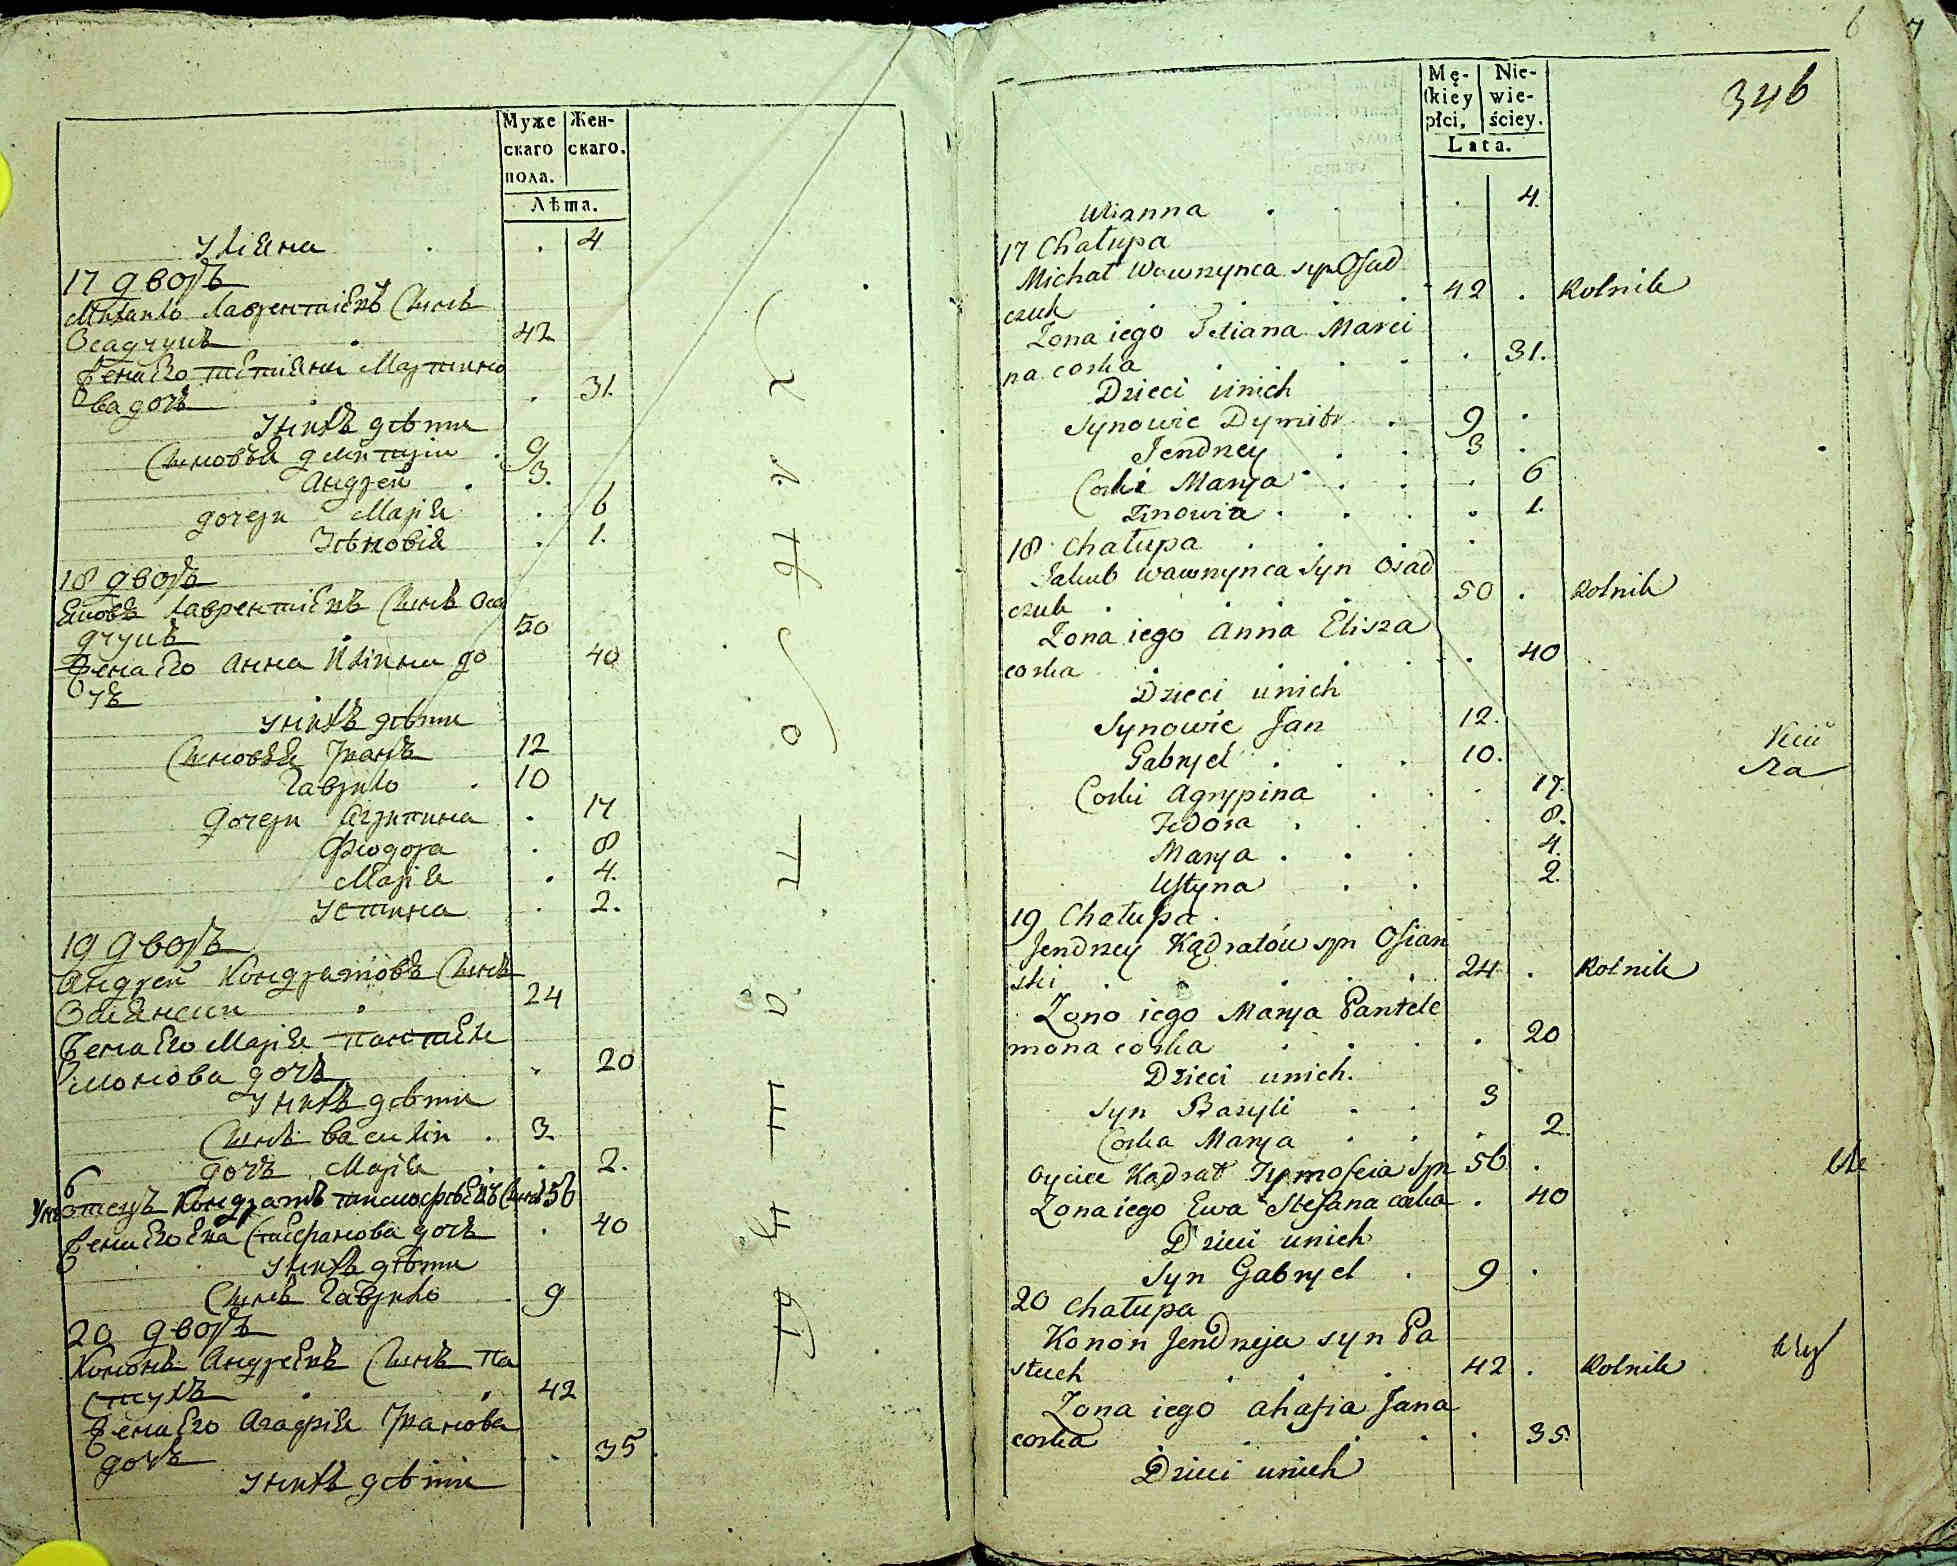 Муже
скаго
пола.
Жен-
скаго.
Лѣта.
Улiяна . . 4
17 дворъ
Михайло Лаврентiевъ Сынъ
Осадчукъ . 42
Жена Его татiяна Мартино
ва дочь . . 31.
У нихъ дѣти
Сыновья дмитрiи . 9
Андрей . 3.
дочери Марiя . 6
Зѣновiя . 1.
18 дворъ
Яковъ Лаврентiевъ Сынъ Оса
дчукъ . 50
Жена Его Анна Илiина до 40
чъ
У нихъ дѣти
Сыновья Iванъ 12
Гаврило . 10
Дочери Агрипина . 17
Феодора . 8
Марiя . 4.
Устина . 2.
19 дворъ
Андрей Кондратовъ Сынъ
Осiянски . 24
Жена Его Марiя Пантеле
монова дочъ . 20
У нихъ дѣти
Сынъ василiи . 3.
дочъ Марiя . . 2.
отецъ Кондратъ тимофѣевъ Сынъ 56
Жена Его Ева Стефанова дочъ . 40
У нихъ дѣти
Сынъ Гаврило . 9
20 дворъ
Кононъ Андреевъ Сынъ Па
стухъ . . 42
Жена Его Агафiя Iванова
дочъ . . 35.
У нихъ дѣти
Mę-
skiey
płci.
Nie-
wie-
ściey.
Lata.
346
Ulianna . . . . 4.
17 Chałupa
Michał Wawrzynca syn Osad
czuk . . . . 42 . Rolnik
Zona iego Tetiana Marci
na corka . . . . 31.
Dzieci unich
Synowie Dymitr . 9 .
Jendrzey . . 3 .
Corki Marya . . . . 6
Zinowia . . . . 1.
18 Chałupa . . . .
Jakub Wawrzynca Syn Osad
czuk . . . . 50 . Rolnik
Zona iego Anna Elisza
corka . . . . . 40
Dzieci unich
Synowie Jan 12.
Gabryel . . . 10.
Corki Agrypina . . . 17.
Fedora . . . . 8.
Marya . . . 4.
Ustyna . . 2.
19 Chałupa .
Jendrzey Kądratów syn Osian
ski . . . . 24 . Rolnik
Zona iego Marya Pantele
mona corka . . . . 20
Dzieci unich.
Syn Bazyli . . 3
Corka Marya . . . 2.
oyciec Kądrat Tymofeia Syn 56 .
Zona iego Ewa Stefana corka . 40
Dzieci unich
Syn Gabryel . 9 .
20 Chałupa
Konon Jendrzeja syn Pa
stuch . . . 42 . Rolnik
Zona iego Ahafia Jana
corka . . . . 35.
Dzieci unich